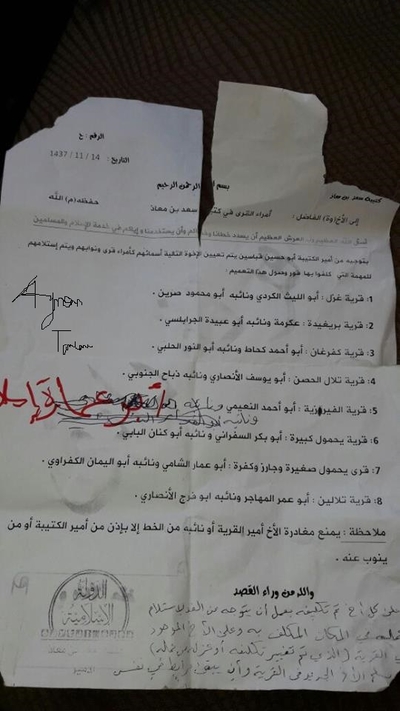 كتيبة سعد بن معاذ
الرقم : ح
التاريخ : 14 / 11 / 1437
بسم الرحمن الرحيم
إلى الأخ(وة) الفاضل : أمراء القرى في سعد بن معاذ حفظه(م) الله
العرش العظيم أن يسدد وأن يستخدمنا وإياكم في خدمة الإسلام والمسلمين
بتوجيه من أمير الكتيبة أبو حسين قبلسين يتم تعيين الإخوة التالية أسمائهم كأمراء قرى ونوابهم ويتم إستلامهم
للمهمة التي كلفوا بها فور وصول هذا التعميم :
1: قرية غزل : أبو الليث الكردي ونائبه أبو محمود صرين .
2: قرية بريغيدة : عكرمة ونائبه أبو عبيدة الجرابلسي .
3: قرية كفرغان : أبو أحمد كحاط ونائبه أبو النور الحلبي .
4: قرية تلال الحصن : أبو يوسف الأنصاري ونائبه ذباح الجنوبي .
5: قرية الفيرزية : أبو أحمد النعيمي ونائبه
ونائبه
6: قرية يحمول كبيرة : أبو بكر السفراني و نائبه أبو كنان البابي .
7: قرى يحمول صغيرة وجارز وكفرة : أبو عمار الشامي ونائبه أبو اليمان الكفراوي .
8: قرية تلالين : أبو عمر المهاجر ونائبه ابو فرج الأنصاري .
ملاحظة : يمنع مغادرة الأخ أمير القرية أو نائبه من الخط إلا بإذن من أمير الكتيبة أو من
ينوب عنه .
والله من وراء القصد
على كل أخ تم تكليفه بعمل أن يتوجه من الغد لاستلام
عمله في المكان المكلف به وعلى الأخ الموجود
في القرية (الذي تم تغيير تكليفه أو
الأخ الجديد في القرية وأن يبقى في نفس
الدولة
الإسلامية
الأمير